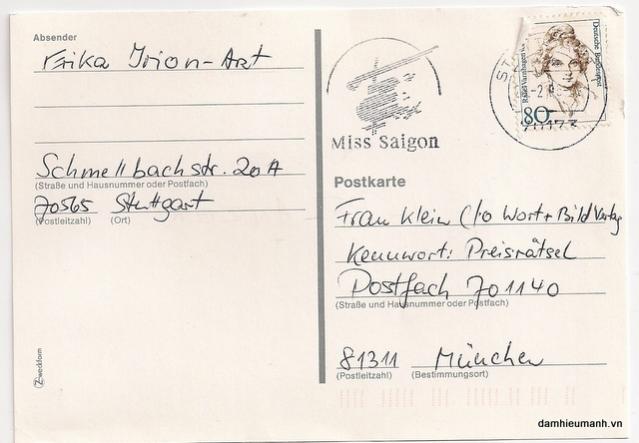 Absender
Erika Irion-Art
Schmellbachstr. 20A
(Straße und Hausnummer oder Postfach)
70565 Stuttgart
(Postleitzahl) (Ort)
Zweckform
Miss Saigon
Deutsche Bundespost
Rahel Varnhagen
80
70173
Postkarte
Frau Klein C/o Wort+Bild Verlag
Kennwort: Preisrätsel
Postfach 701140
(Straße und Hausnummer oder Postfach)
81311 München
(Postleitzahl) (Bestimmungsort)
damhieumanh.vn